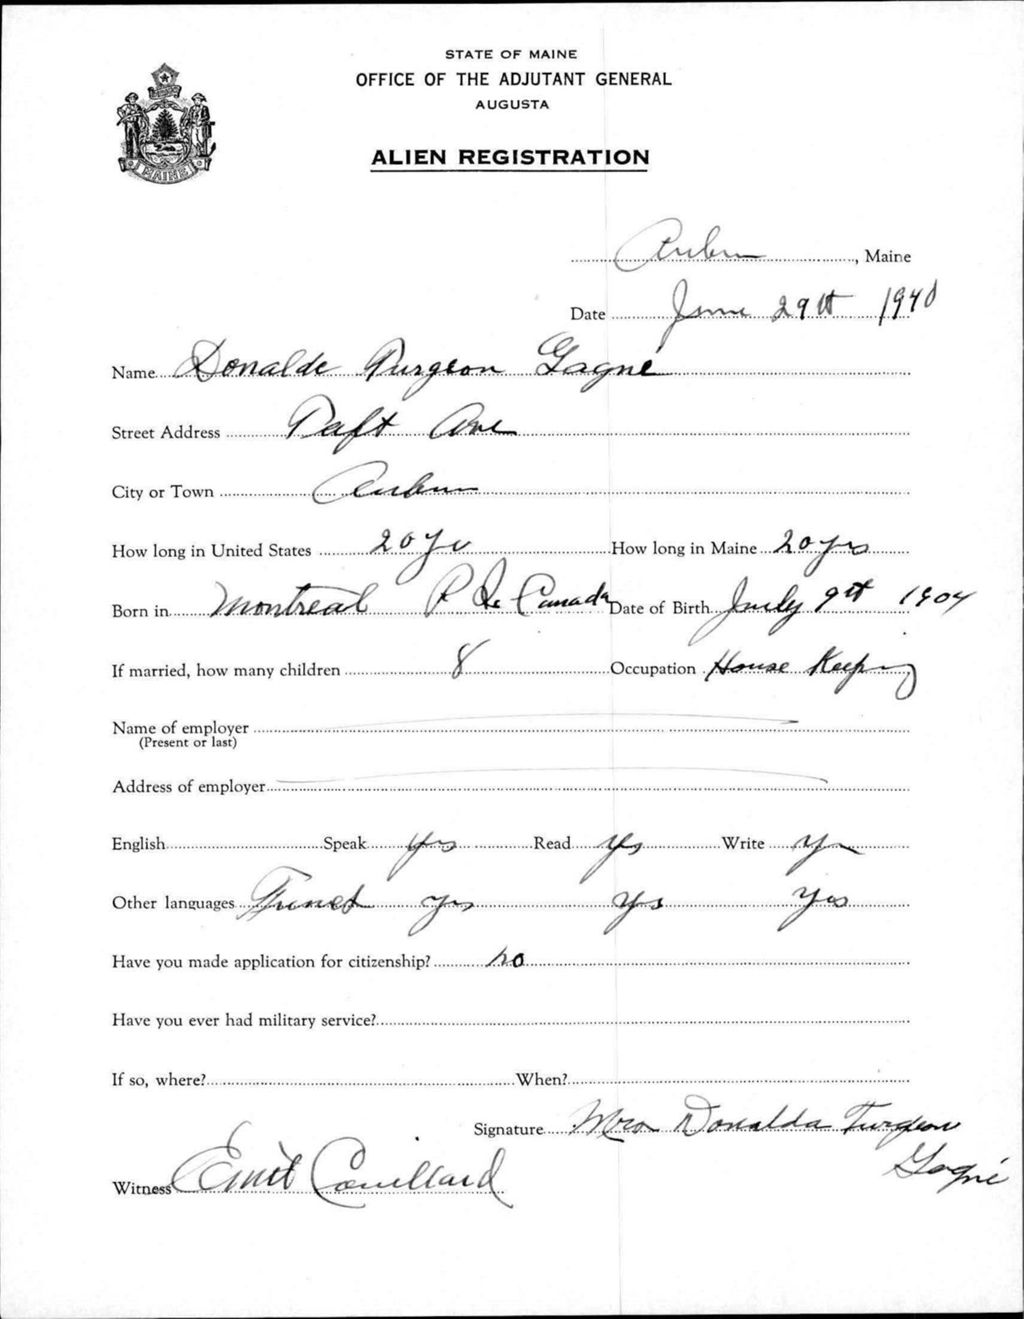 STATE OF MAINE
OFFICE OF THE ADJUTANT GENERAL
AUGUSTA
ALIEN REGISTRATION
MAINE
Auburn, Maine
Date June 29th 1940
Name Donalde Turgeon Gagné
Street Address Taft Ave
City or Town Auburn
How long in United States 20 yrs How long in Maine 20 yrs
Born in Montreal P. Q. Canada Date of Birth July 9th 1904
If married, how many children 8 Occupation House Keeping
Name of employer
(Present or last)
Address of employer
English Speak yes Read yes Write yes
Other languages French yes yes yes
Have you made application for citizenship? no
Have you ever had military service?
If so, where? When?
Signature Mrs Donalda Turgeon
Gagné
Witness Emil Couillard